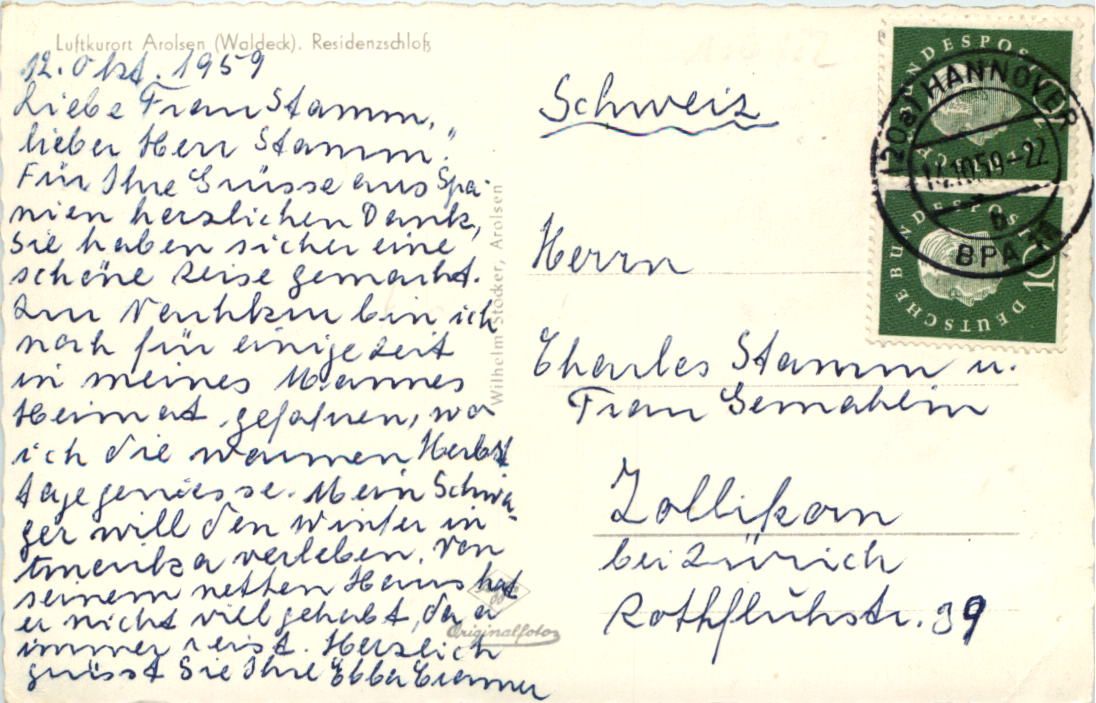 Luftkurort Arolsen (Waldeck). Residenzschloß
12. Okt. 1959
Liebe Frau Stamm,
lieber Herr Stamm.
Für Ihre Grüsse aus Spa-
nien herzlichen Dank,
Sie haben sicher eine
schöne Reise gemacht.
Zur Nachkur bin ich
noch für einige Zeit
in meines Mannes
Heimat gefahren, wo
ich die warmen Herbst
tage geniesse. Mein Schwa-
ger will den Winter in
Amerika verleben. Von
seinem netten Haus hat
er nicht viel gehabt, da er
immer reist. Herzlich
grüsst Sie Ihre Ebba
Wilhelm Stöcker, Arolsen
Originalfoto
Schweiz
Herrn
Charles Stamm u.
Frau Gemahlin
Zollikon
bei Zürich
Rothfluhstr. 39
(20a) HANNOVER
14.10.59-22
b
BPA
DEUTSCHE BUNDESPOST
10